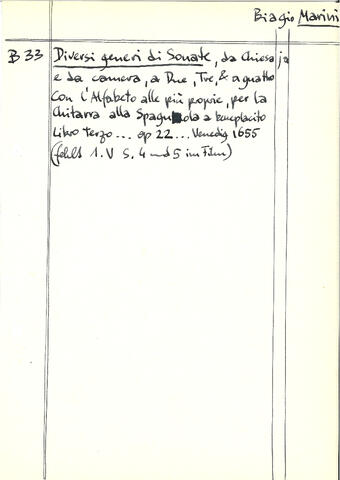 Biagio Marini
B 33 Diversi generi di Sonate, da Chiesa ja
e da camera, a Due, Tre, & a quattro
con l'Alfabeto alle più proprie, per la
Chitarra alla Spagnola a beneplacito
Libro terzo... op 22... Venedig 1655
(fehlt 1. V S. 4 und 5 im Film)